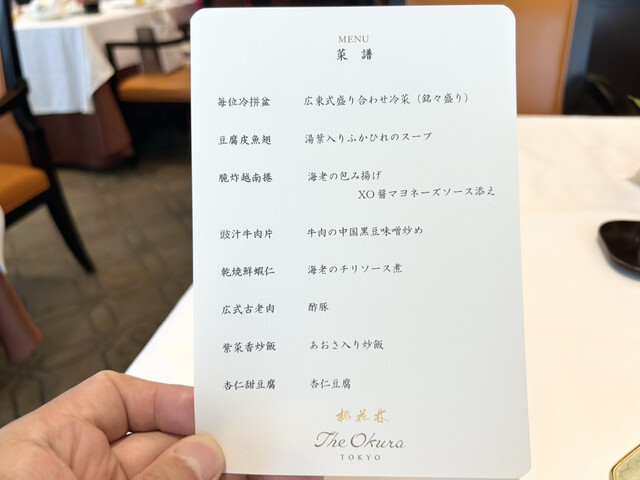 MENU
菜譜
毎位冷拼盆 広東式盛り合わせ冷菜（銘々盛り）
豆腐皮魚翅 湯葉入りふかひれのスープ
脆炸越南捲 海老の包み揚げ
XO醤マヨネーズソース添え
豉汁牛肉片 牛肉の中国黒豆味噌炒め
乾焼鮮蝦仁 海老のチリソース煮
広式古老肉 酢豚
紫菜香炒飯 あおさ入り炒飯
杏仁甜豆腐 杏仁豆腐
桃花林
The Okura
TOKYO